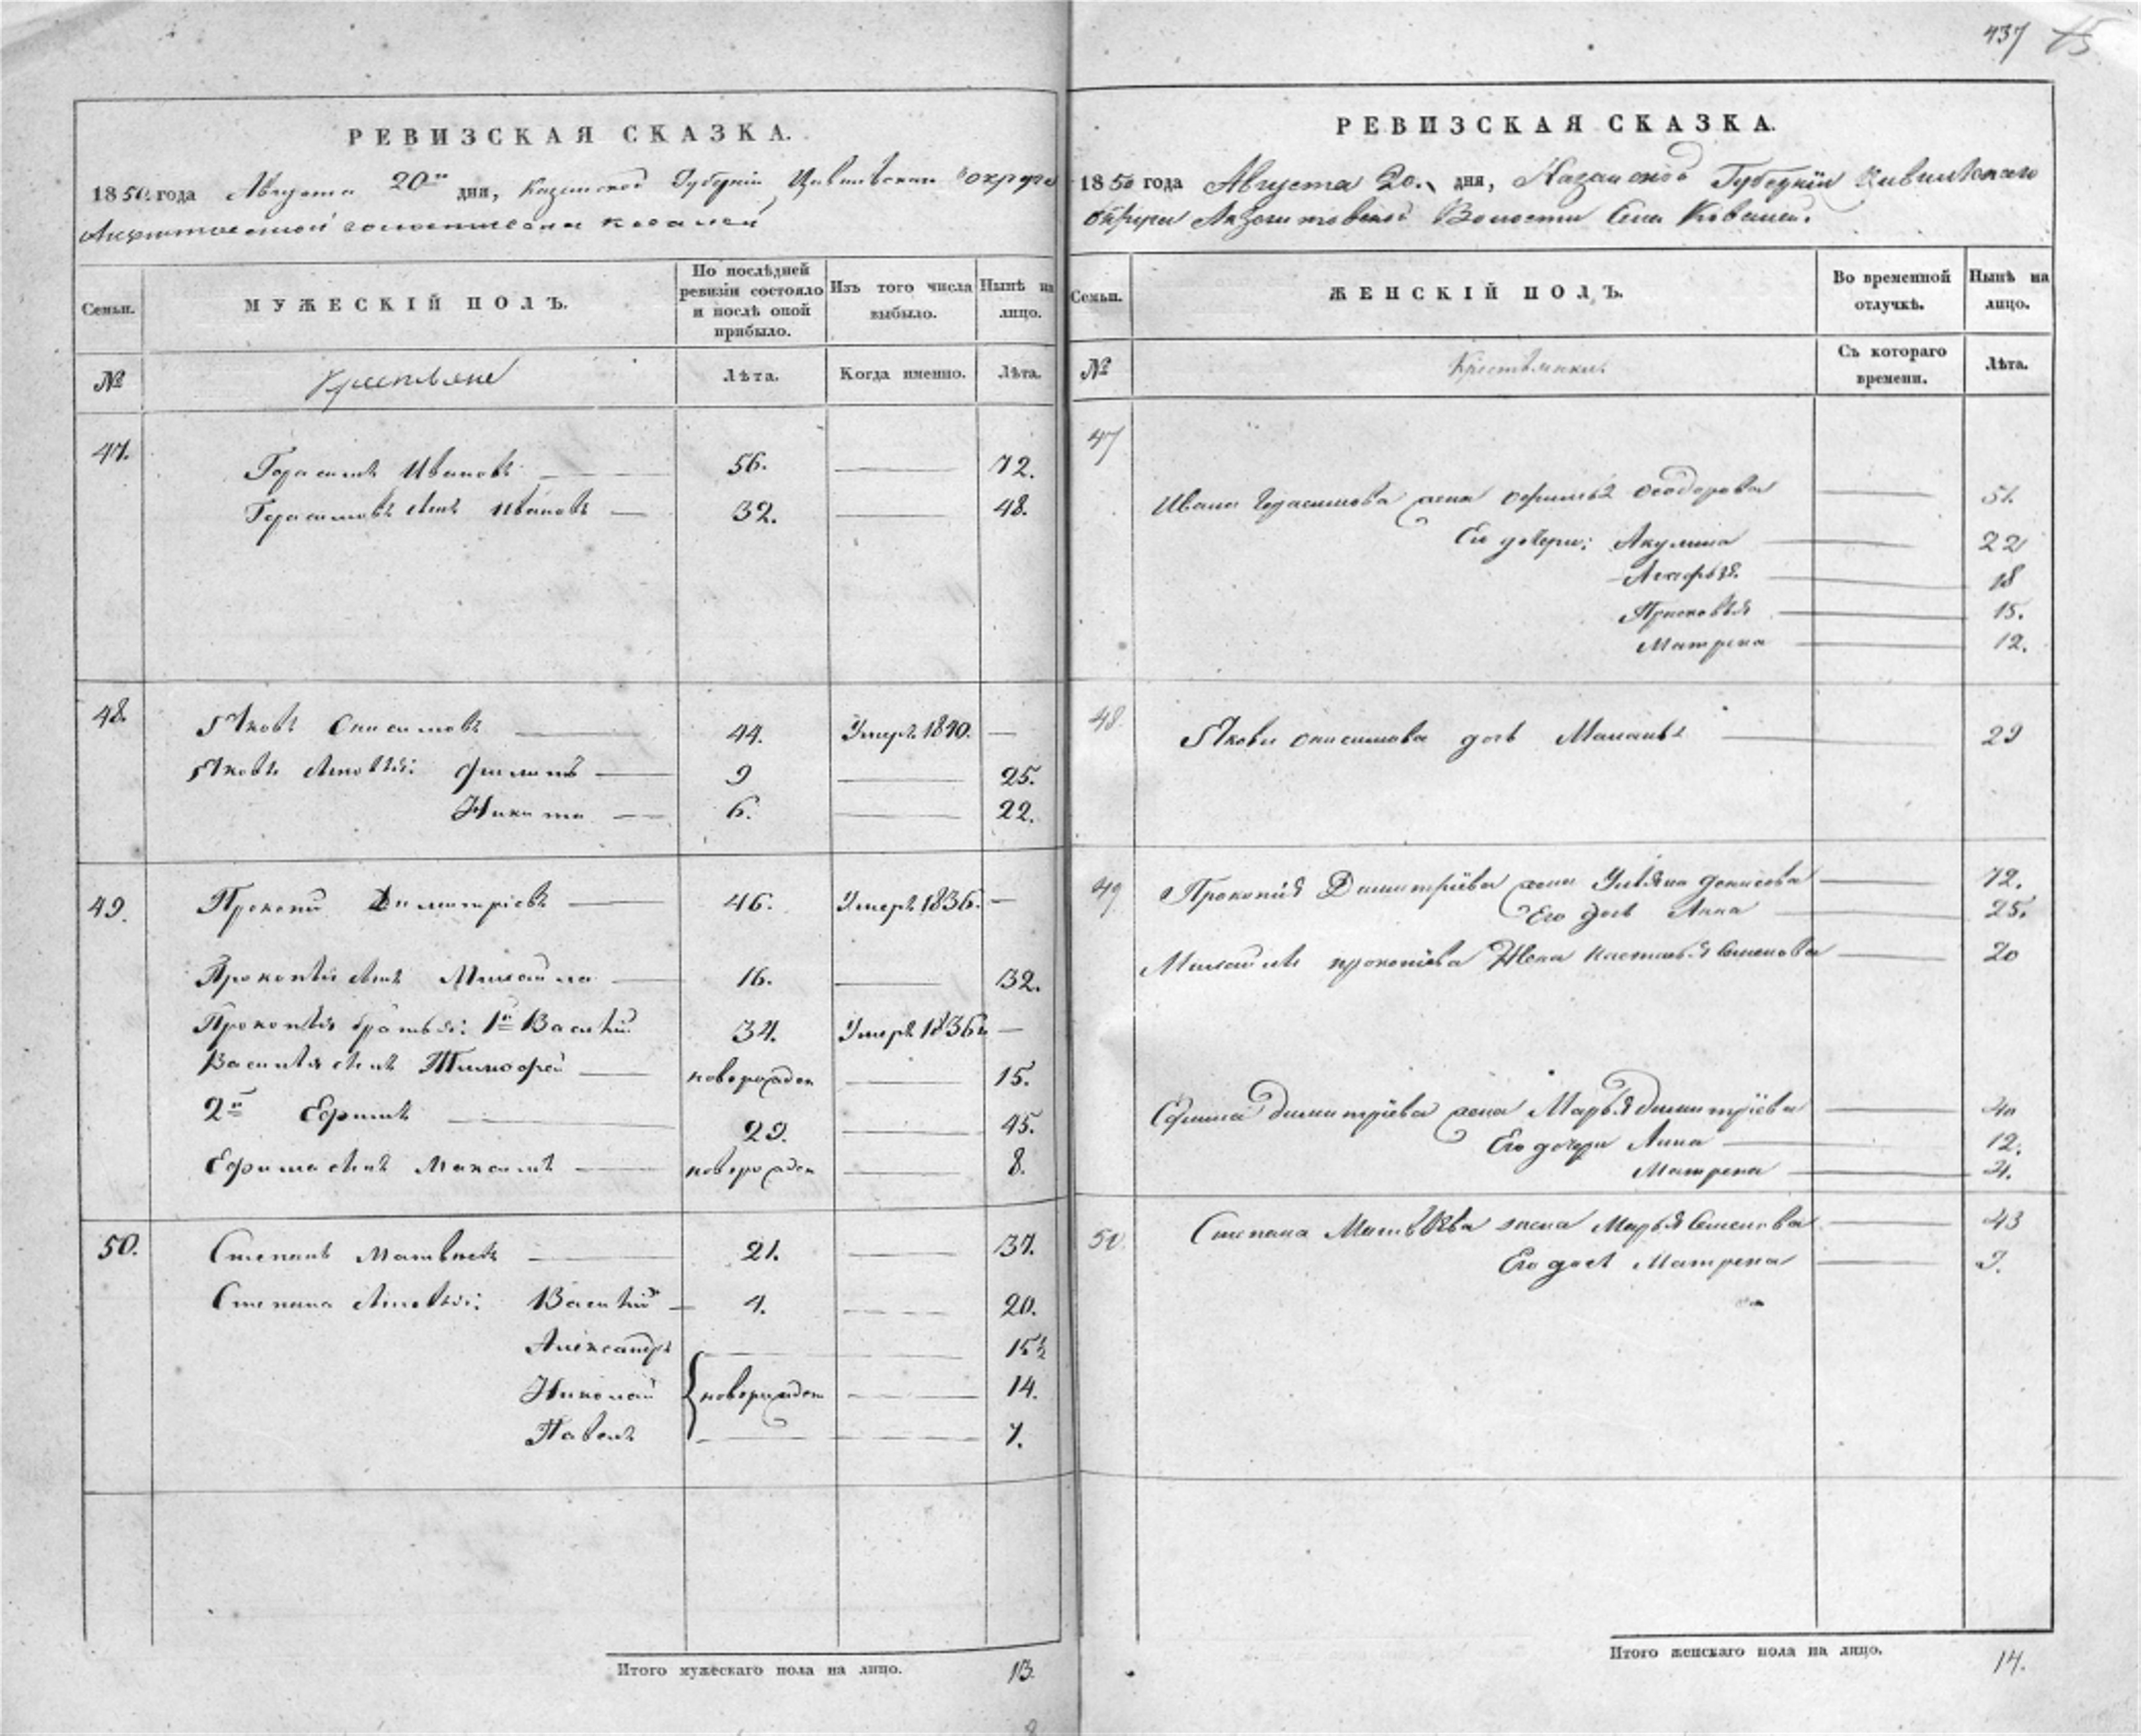 437 75
РЕВИЗСКАЯ СКАЗКА.
1850 года Августа 20го дня, Казанской Губернiи, Цивильскаго округа
волости села Ковалей
Семьи.
МУЖЕСКІЙ ПОЛЪ.
По послѣдней ревизіи состояло и послѣ оной прибыло.
Изъ того числа выбыло.
Нынѣ на лицо.
№
Крестьяне
Лѣта.
Когда именно.
Лѣта.
47. Герасимъ Ивановъ 56. 72.
Герасимовъ сынъ Ивановъ 32. 48.
48. Яковъ Онисимовъ 44. Умеръ 1840.
Якова сыновья: Филипъ 9 25.
Никита 6. 22.
49. Прокопій Димитріевъ 46. Умеръ 1836.
Прокопія сынъ Михайла 16. 32.
Прокопія братья: 1й Василій 34. Умеръ 1836.
Василія сынъ Тимофей новорожден 15.
2й Ефимъ 29. 45.
Ефима сынъ Максимъ новорожден 8.
50. Степанъ Матвѣевъ 21. 37.
Степана сыновья: Василій 4. 20.
Александръ 15½
Николай новорожден 14.
Павелъ 7.
Итого мужескаго пола на лицо. 13.
РЕВИЗСКАЯ СКАЗКА.
1850 года Августа 20. дня, Казанской Губерніи Цивильскаго
округи Волости Села Ковалей.
Семьи.
ЖЕНСКІЙ ПОЛЪ.
Во временной отлучкѣ.
Нынѣ на лицо.
№
Крестьянки.
Съ котораго времени.
Лѣта.
47
Ивана Герасимова жена Офимья Ѳеодорова 51.
Его дочери: Акулина 22
Агафья 18
Прасковья 15.
Матрена 12.
48. Якова Онисимова дочь Маланья 29
49 Прокопія Димитріева жена Ульяна Денисова 72.
Его дочь Анна 25.
Михайлы Прокопіева Жена Настасья Семенова 20
Ефима Димитріева жена Марья Димитріева 40
Его дочери Анна 12.
Матрена 4.
50. Степана Матвѣева жена Марья Семенова 43
Его дочь Матрена 9.
Итого женскаго пола на лицо. 14.